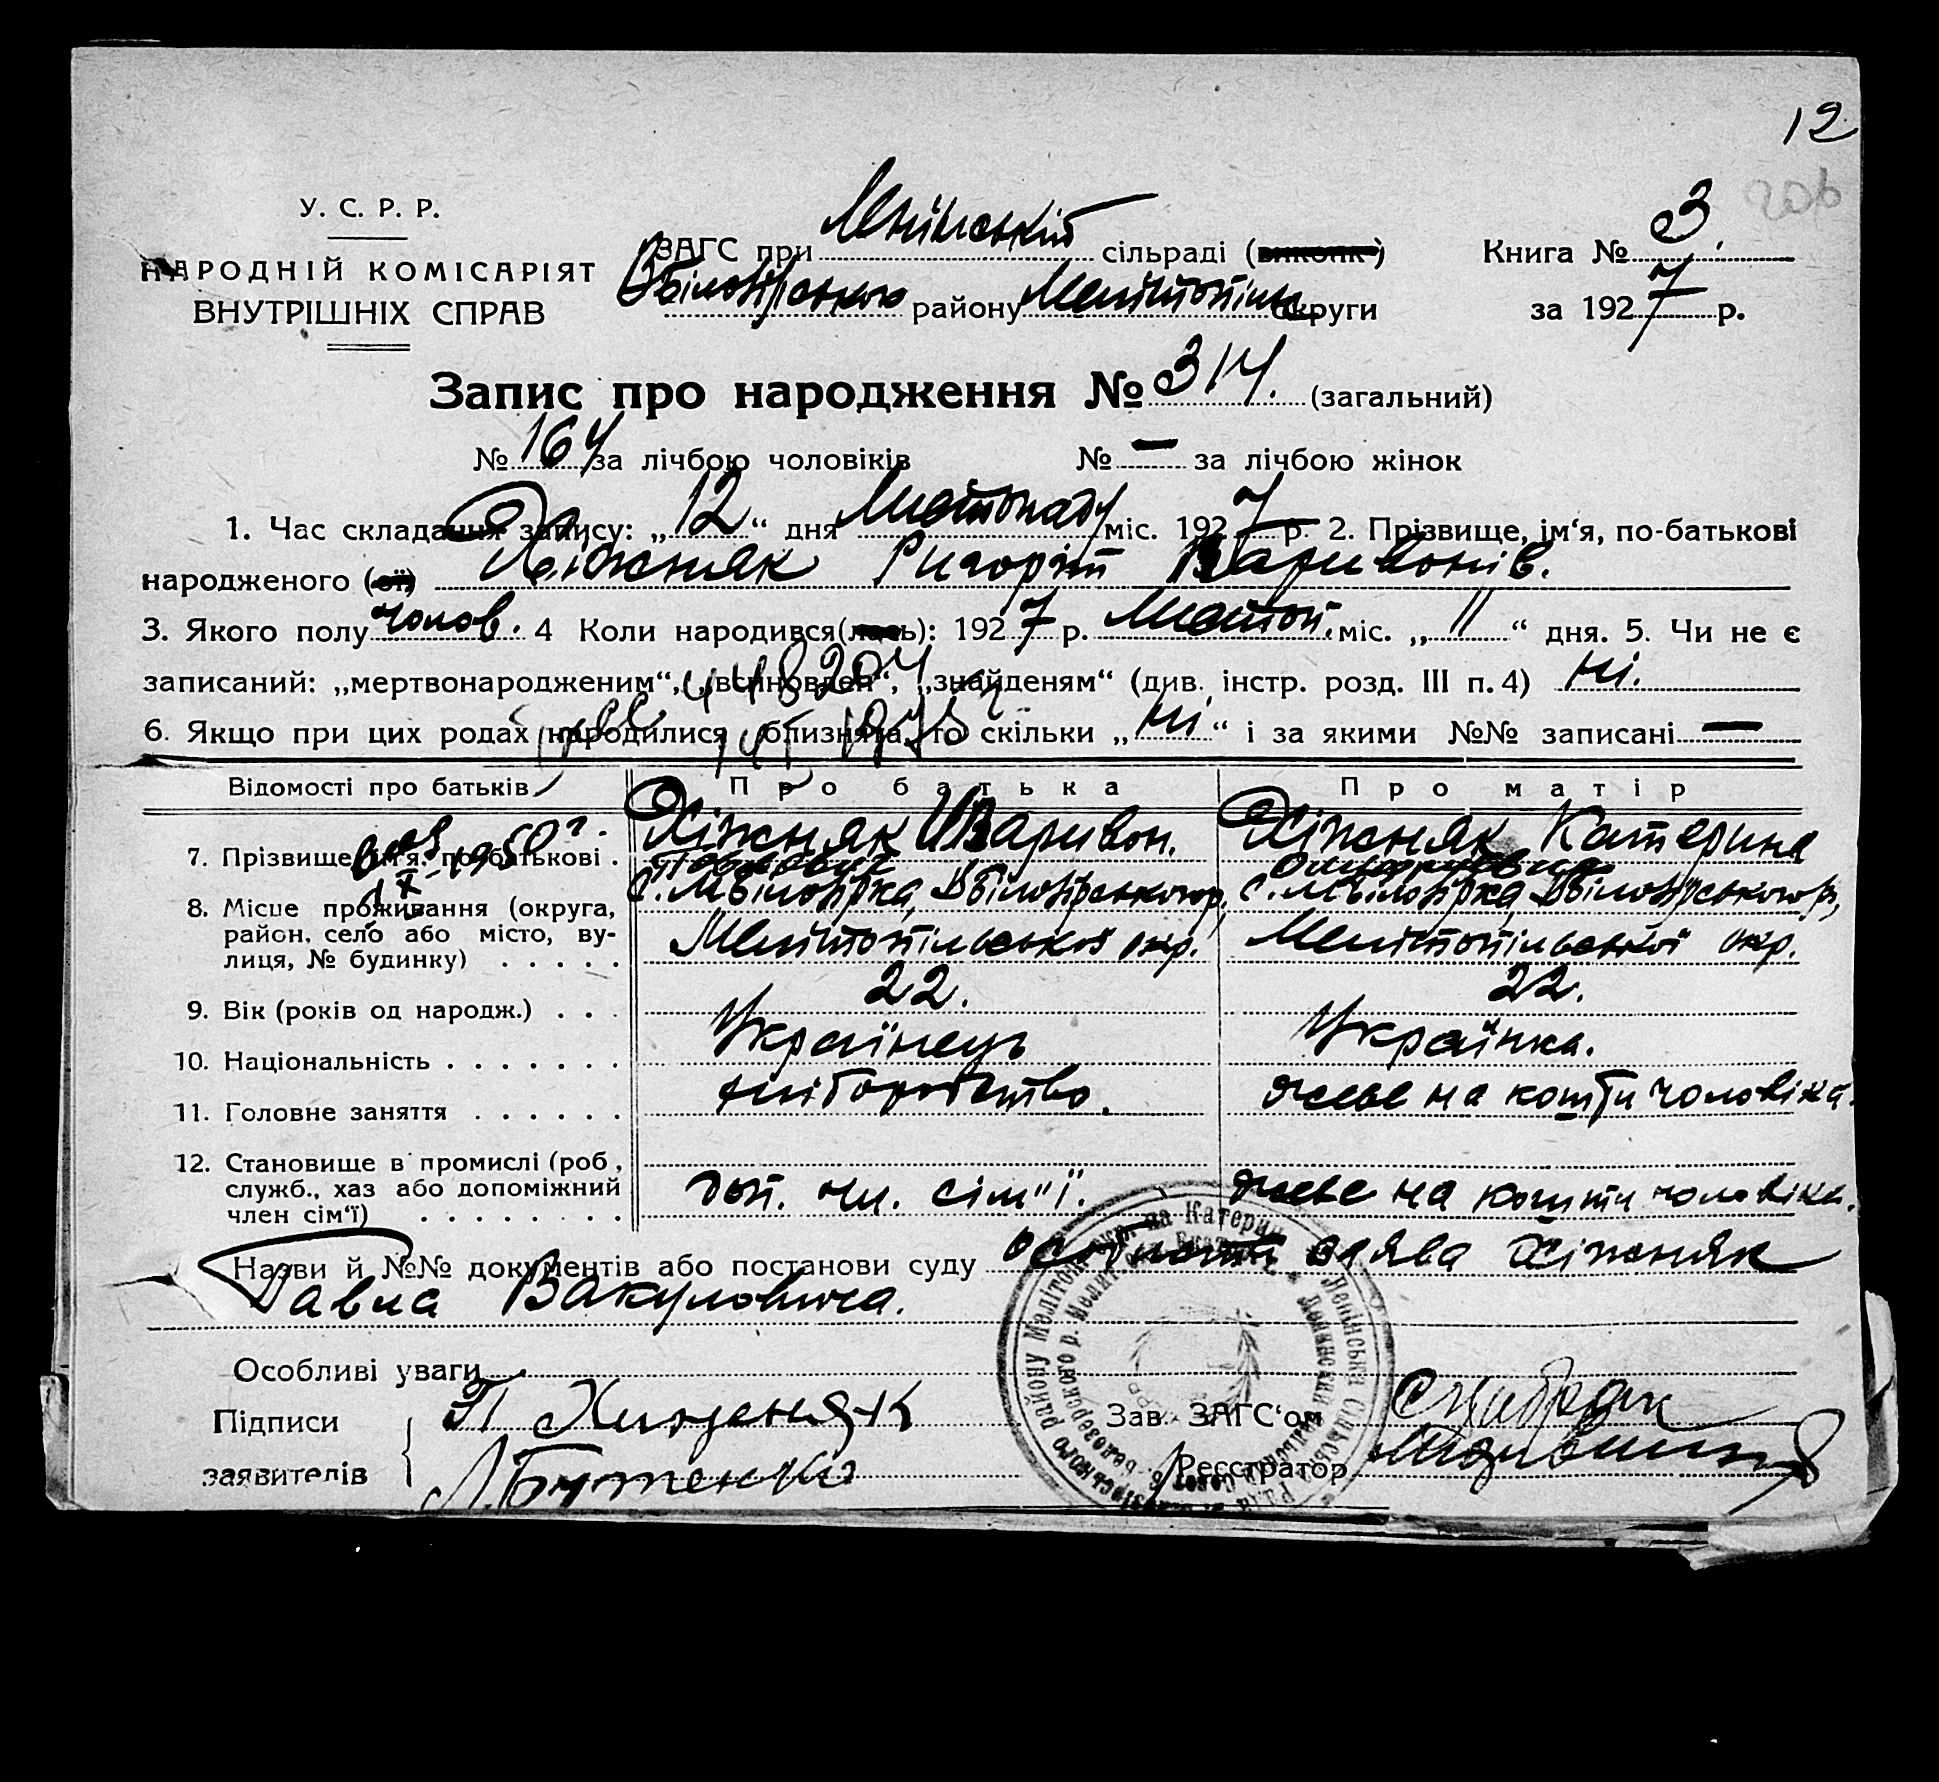 12
У. С. Р. Р.
НАРОДНІЙ КОМІСАРІЯТ
ВНУТРІШНІХ СПРАВ
ЗАГС при Ленінській сільраді (виконк)
Вбілозірського району Мелітопільс округи
Книга № 3.
за 1927 р.
Запис про народження № 314. (загальний)
№ 164 за лічбою чоловіків № — за лічбою жінок
1. Час складання запису: „12“ дня Листопаду міс. 1927 р. 2. Прізвище, ім‘я, по-батькові
народженого (ої) Хіжняк Григорій Варивонів.
3. Якого полу чолов. 4 Коли народився(лась): 1927 р. Листоп. міс. „11“ дня. 5. Чи не є
записаний: „мертвонародженим“, „всиновлен“, „знайденям“ (див. інстр. розд. III п. 4) ні.
6. Якщо при цих родах народилися близнята, то скільки „ні“ і за якими №№ записані —
Відомості про батьків Про батька Про матір
7. Прізвище, ім‘я, по-батькові . Хіжняк Варивон. Хіжняк Катерина
1950 г.
8. Місце проживання (округа,
район, село або місто, ву-
лиця, № будинку) . . . . .
с. М Білозірка, Вбілозірського р, с. М Білозірка, Вбілозірського р,
Мелітопільської окр. Мелітопільської окр.
9. Вік (років од народж.) . . . 22. 22.
10. Національність . . . . . . . Українець Українка.
11. Головне заняття . . . . . . хліборобство. живе на кошти чоловіка.
12. Становище в промислі (роб,
служб., хаз або допоміжний
член сім‘ї) . . . . . . . .
доп. чл. сім"ї. живе на кошти чоловіка.
Назви й №№ документів або постанови суду особиста заява Хіжняк
Павла Вакуловича.
Особливі уваги
Підписи П Хижняк Зав. ЗАГС‘ом
заявителів Л. Бутенко Реєстратор